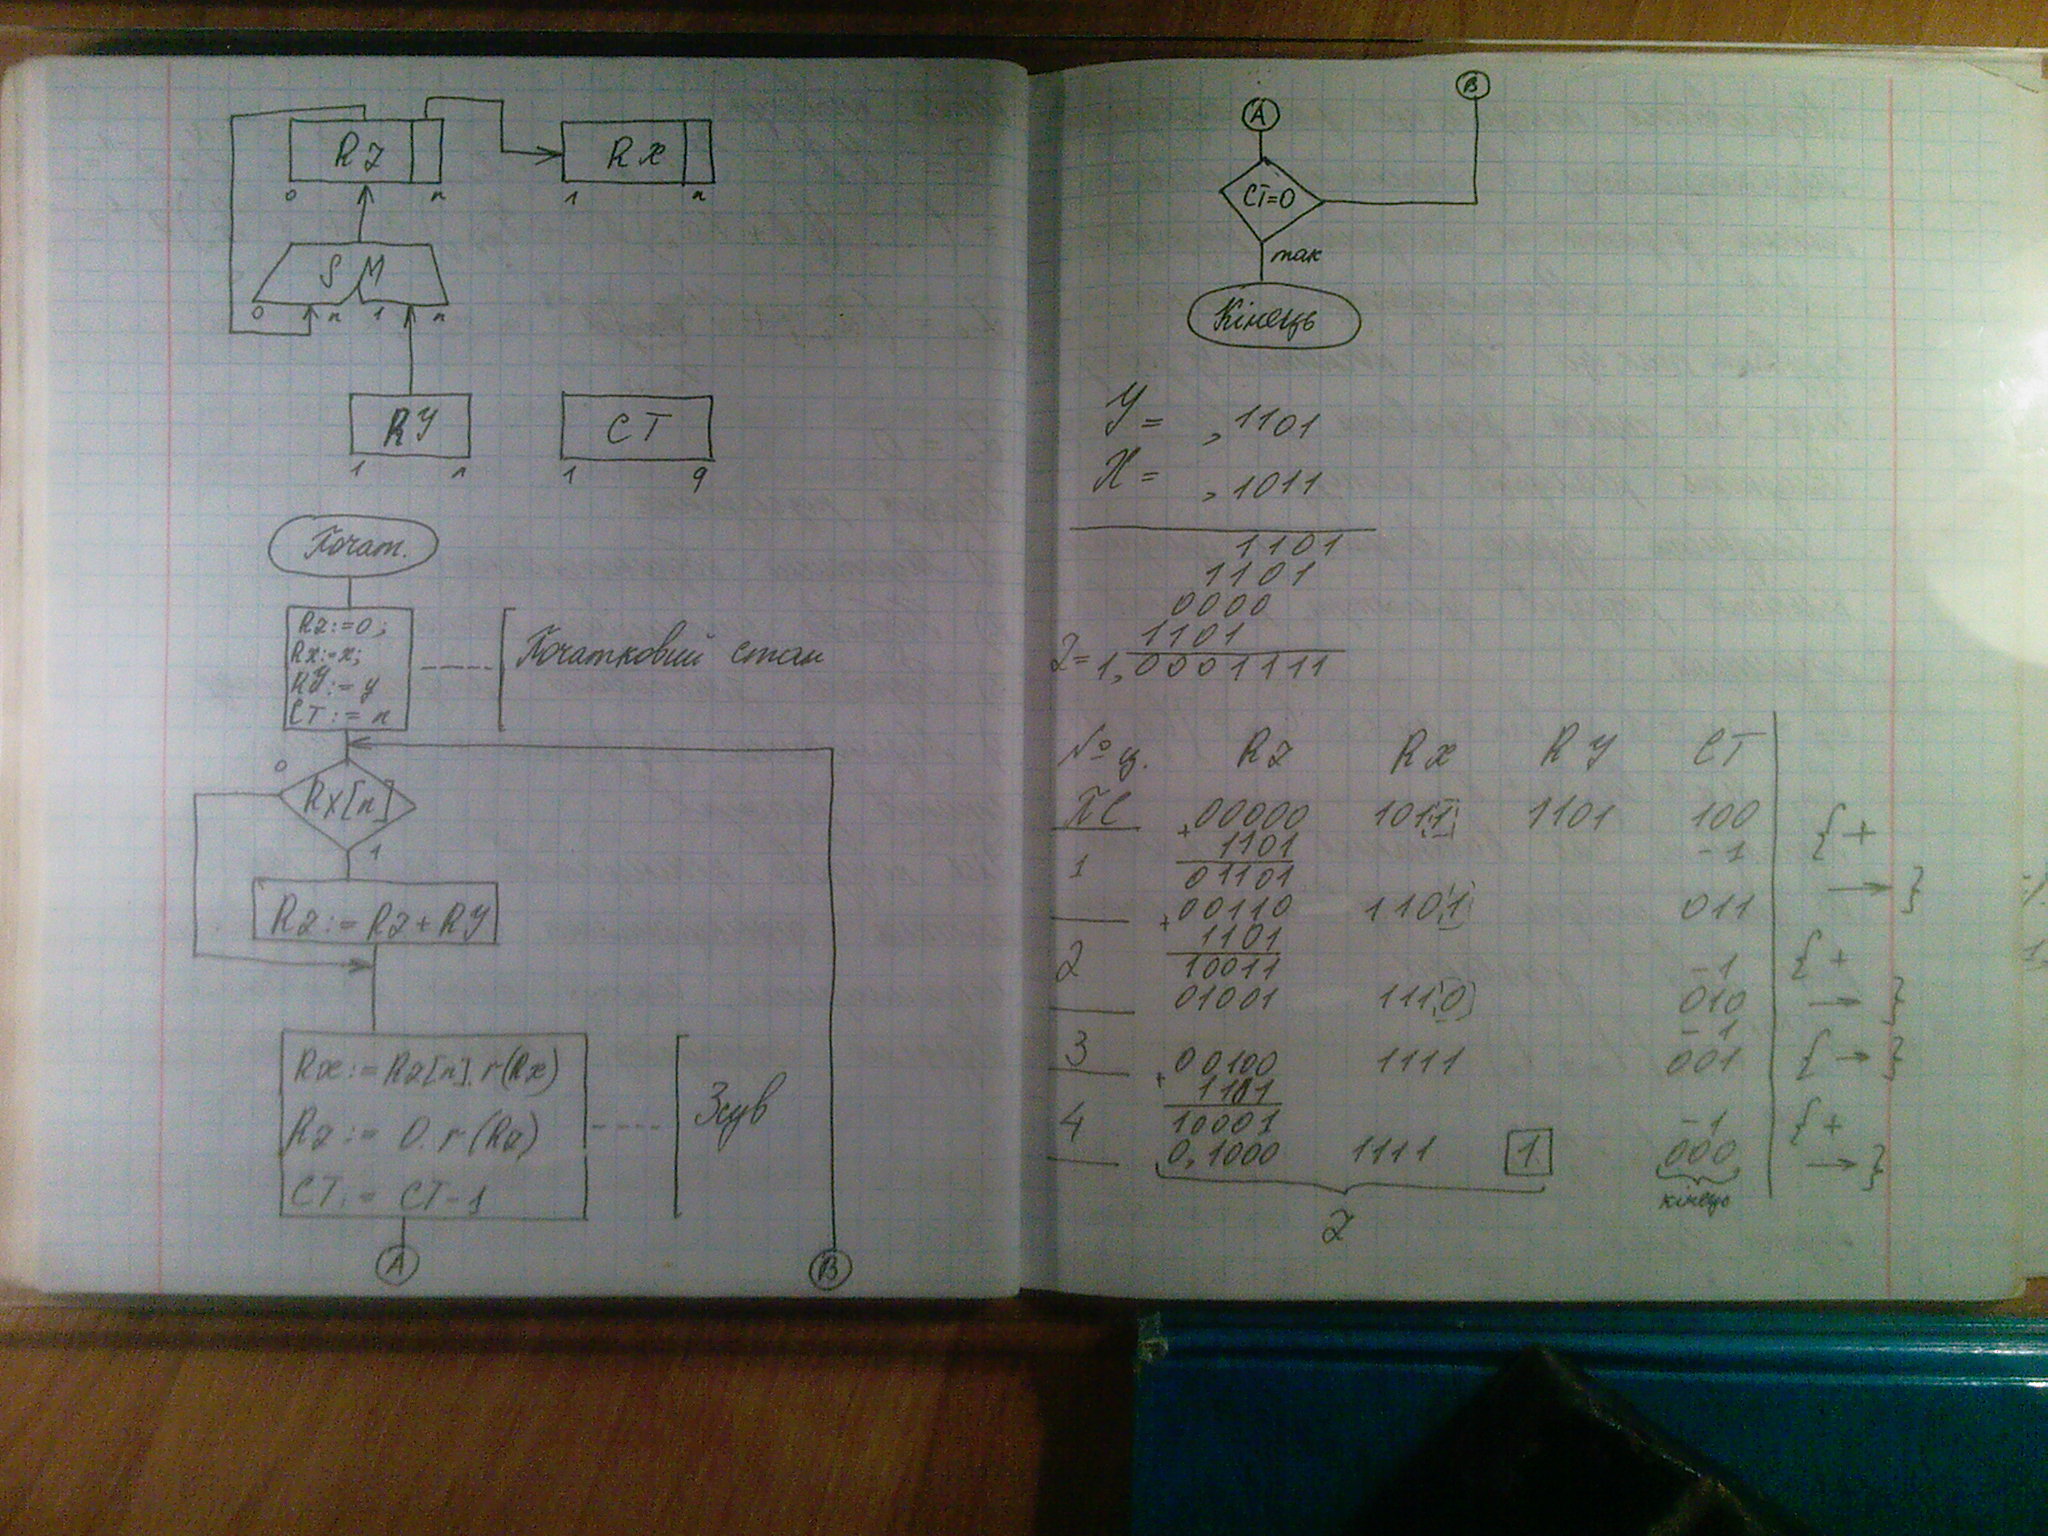 RZ
RX
0 n 1 n
SM
0 n 1 n
RY
CT
1 n 1 q
Почат.
RZ:=0;
RX:=x;
RY:=y
CT:=n
Початковий стан
0
RX[n]
1
RZ:=RZ+RY
RX:=RZ[n].r(RX)
RZ:=0.r(RZ)
CT:=CT-1
Зсув
A
B
A
B
CT=0
так
Кінець
Y= ,1101
X= ,1011
1101
1101
0000
1101
Z=1,0001111
№ ц. RZ RX RY CT
ПС 00000 1011 1101 100 { +
+ 1101 -1
1 01101 → }
00110 1101 011
+ 1101
2 10011 -1 { +
01001 1110 010 → }
-1
3 00100 1111 001 { → }
+ 1101
4 10001 -1 { +
0,1000 1111 1 000 → }
Z
кінець